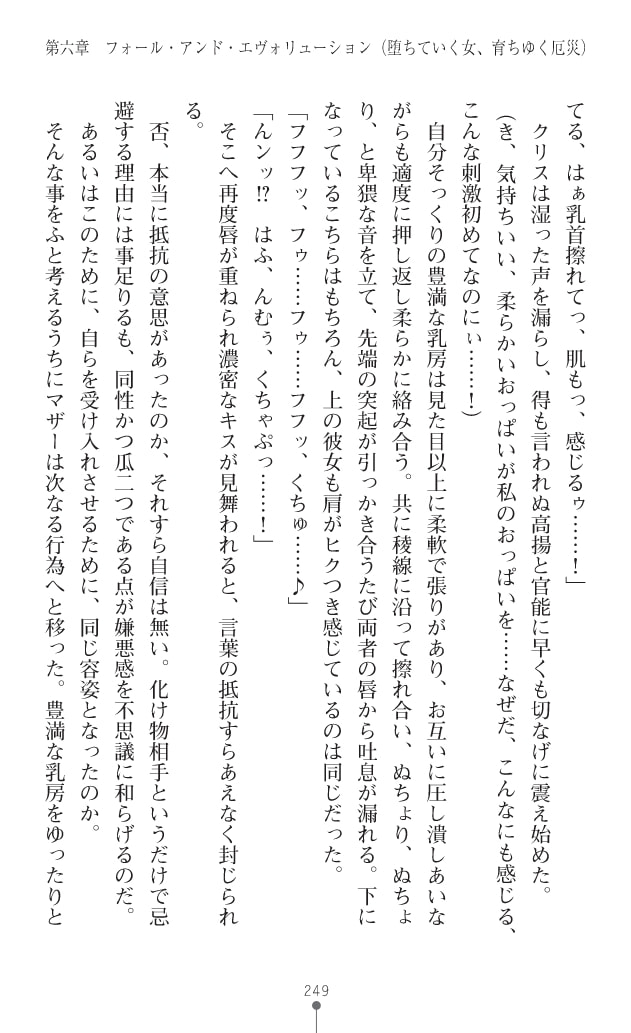 第六章　フォール・アンド・エヴォリューション（堕ちていく女、育ちゆく厄災）
てる、はぁ乳首擦れてっ、肌もっ、感じるぅ……！」
　クリスは湿った声を漏らし、得も言われぬ高揚と官能に早くも切なげに震え始めた。
（き、気持ちいい、柔らかいおっぱいが私のおっぱいを……なぜだ、こんなにも感じる、
こんな刺激初めてなのにぃ……！）
　自分そっくりの豊満な乳房は見た目以上に柔軟で張りがあり、お互いに圧し潰しあいな
がらも適度に押し返し柔らかに絡み合う。共に稜線に沿って擦れ合い、ぬちょり、ぬちょ
り、と卑猥な音を立て、先端の突起が引っかき合うたび両者の唇から吐息が漏れる。下に
なっているこちらはもちろん、上の彼女も肩がヒクつき感じているのは同じだった。
「フフフッ、フゥ……フゥ……フフッ、くちゅ……♪」
「んンッ!?　はふ、んむぅ、くちゃぷっ……！」
　そこへ再度唇が重ねられ濃密なキスが見舞われると、言葉の抵抗すらあえなく封じられ
る。
　否、本当に抵抗の意思があったのか、それすら自信は無い。化け物相手というだけで忌
避する理由には事足りるも、同性かつ瓜二つである点が嫌悪感を不思議に和らげるのだ。
　あるいはこのために、自らを受け入れさせるために、同じ容姿となったのか。
　そんな事をふと考えるうちにマザーは次なる行為へと移った。豊満な乳房をゆったりと
249